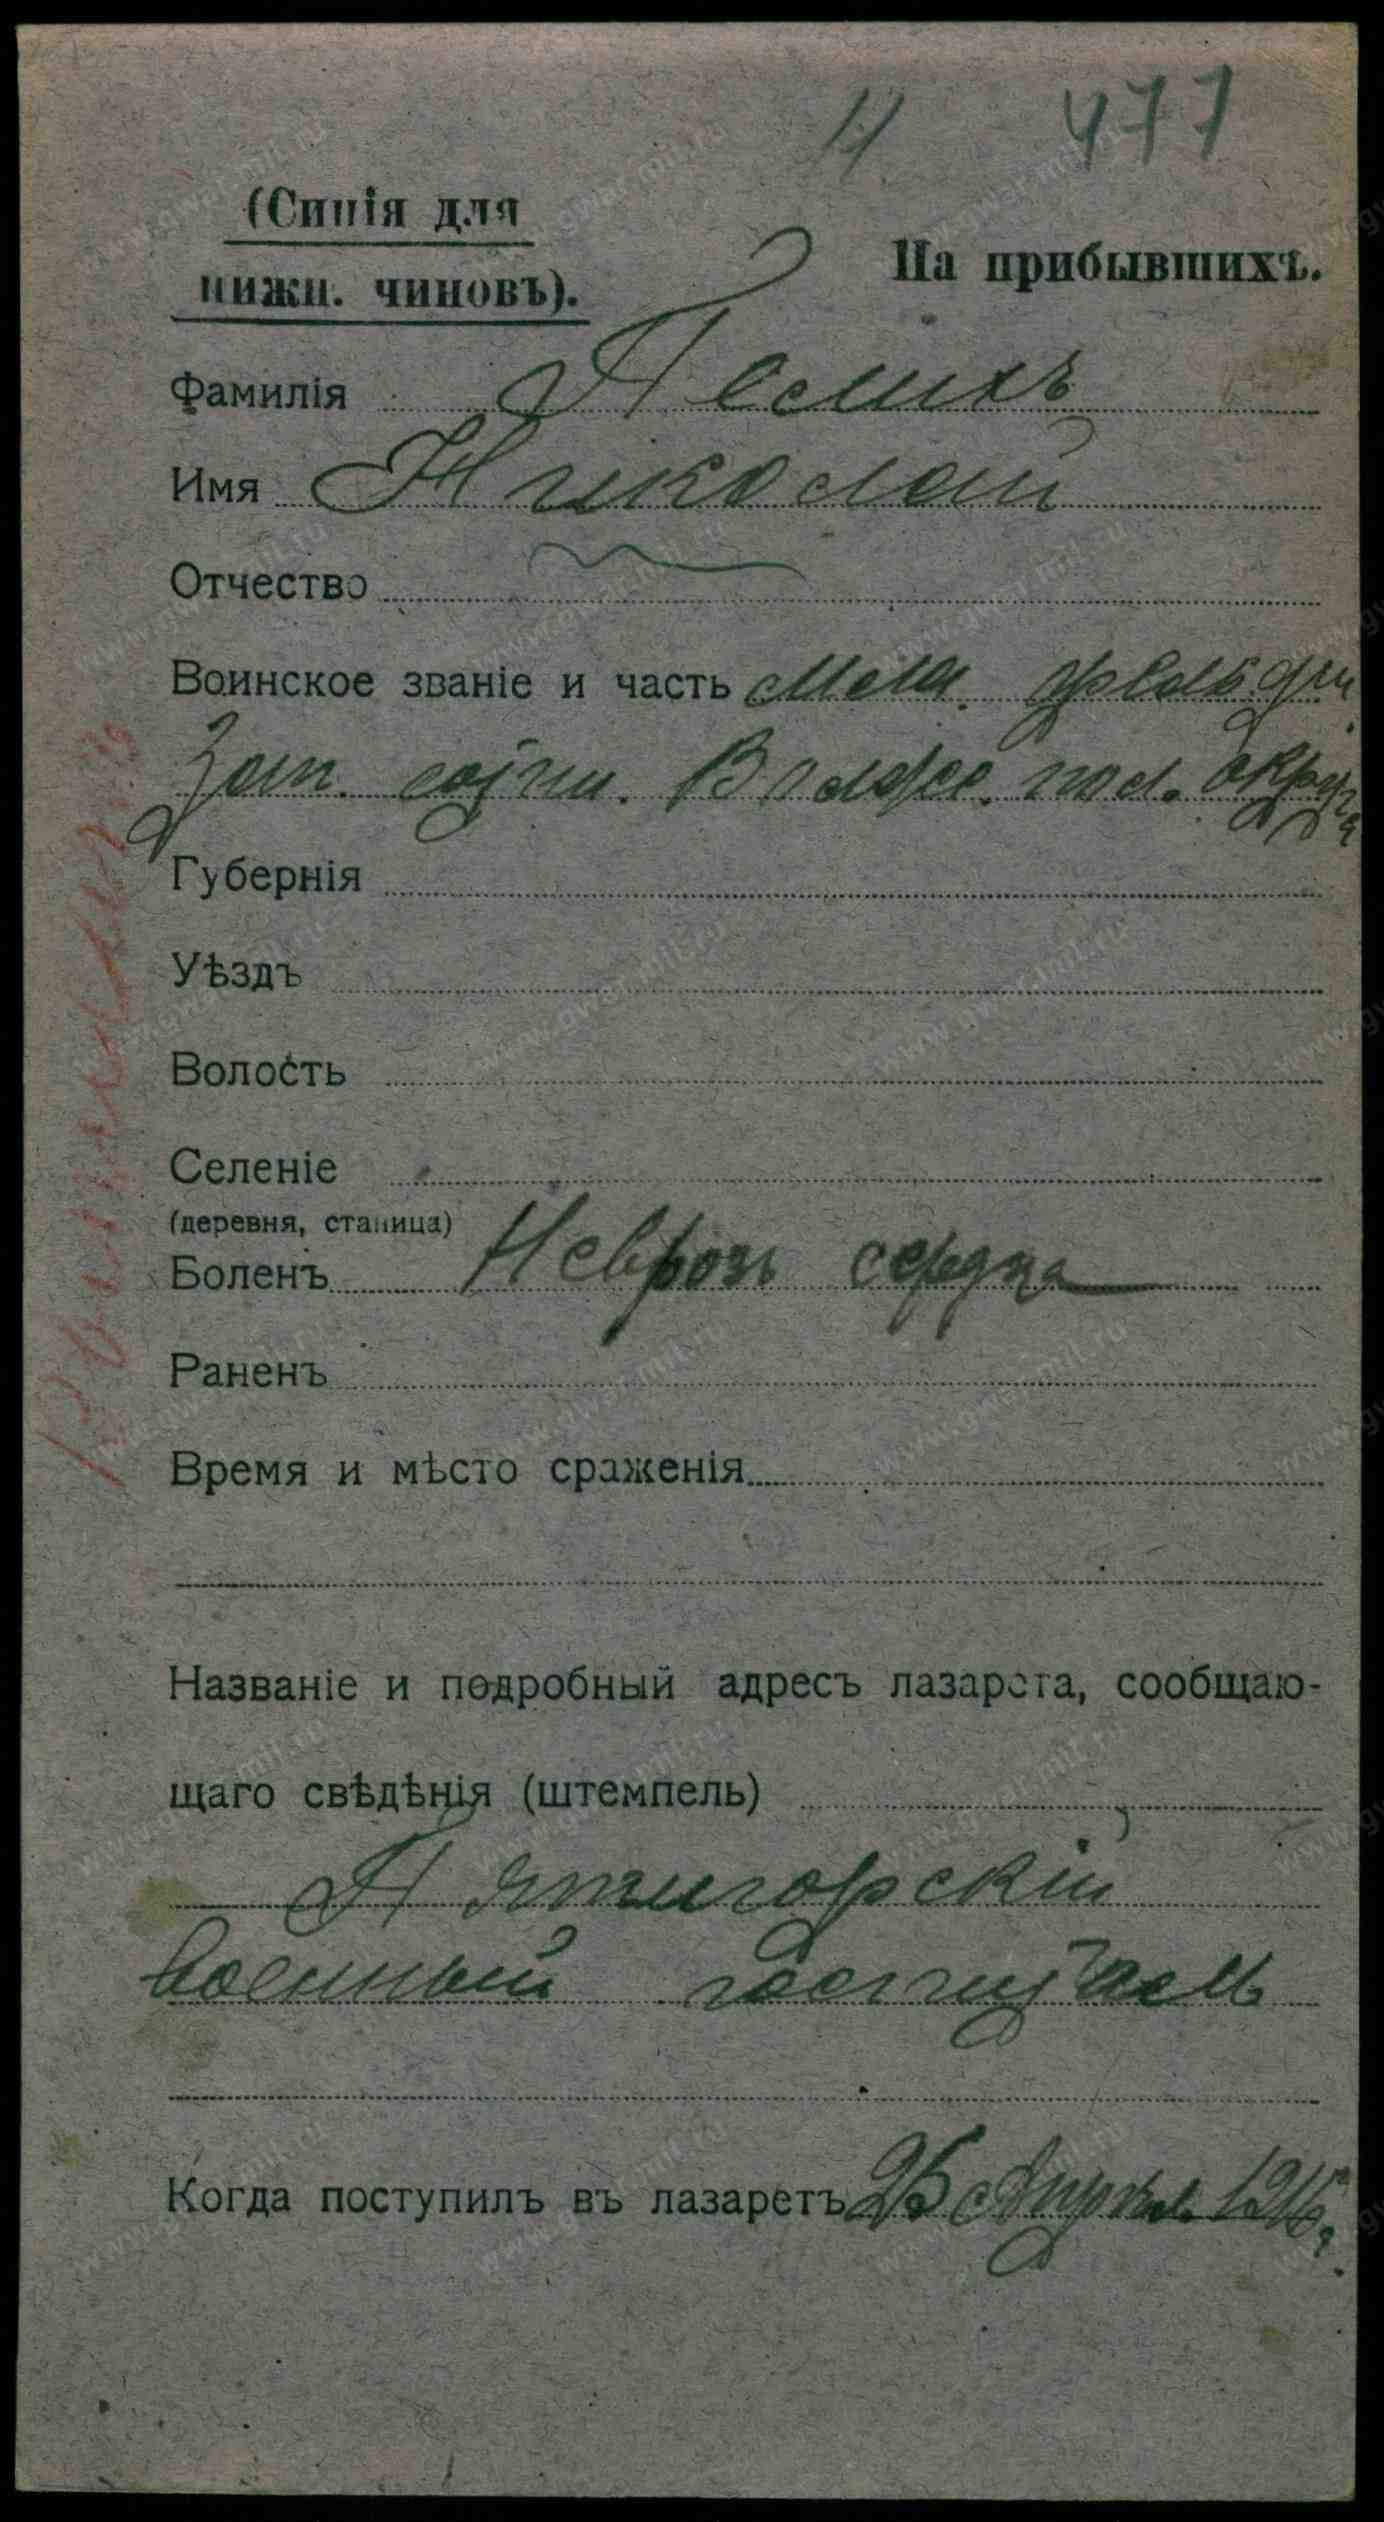 477
(Синія для
нижн. чиновъ).
На прибывшихъ.
Фамилія
Имя Николай
Отчество
Воинское званіе и часть Мед. фельдш.
Зап. сотни. Волж. пол. округа
Губернія
Уѣздъ
Волость
Селеніе
(деревня, станица)
Боленъ Неврозъ сердца
Раненъ
Время и мѣсто сраженія
Названіе и подробный адресъ лазарета, сообщаю-
щаго свѣдѣнія (штемпель)
Пятигорскій
военный госпиталь
Когда поступилъ въ лазаретъ 25 Апрѣл. 1916 г.
www.gwar.mil.ru